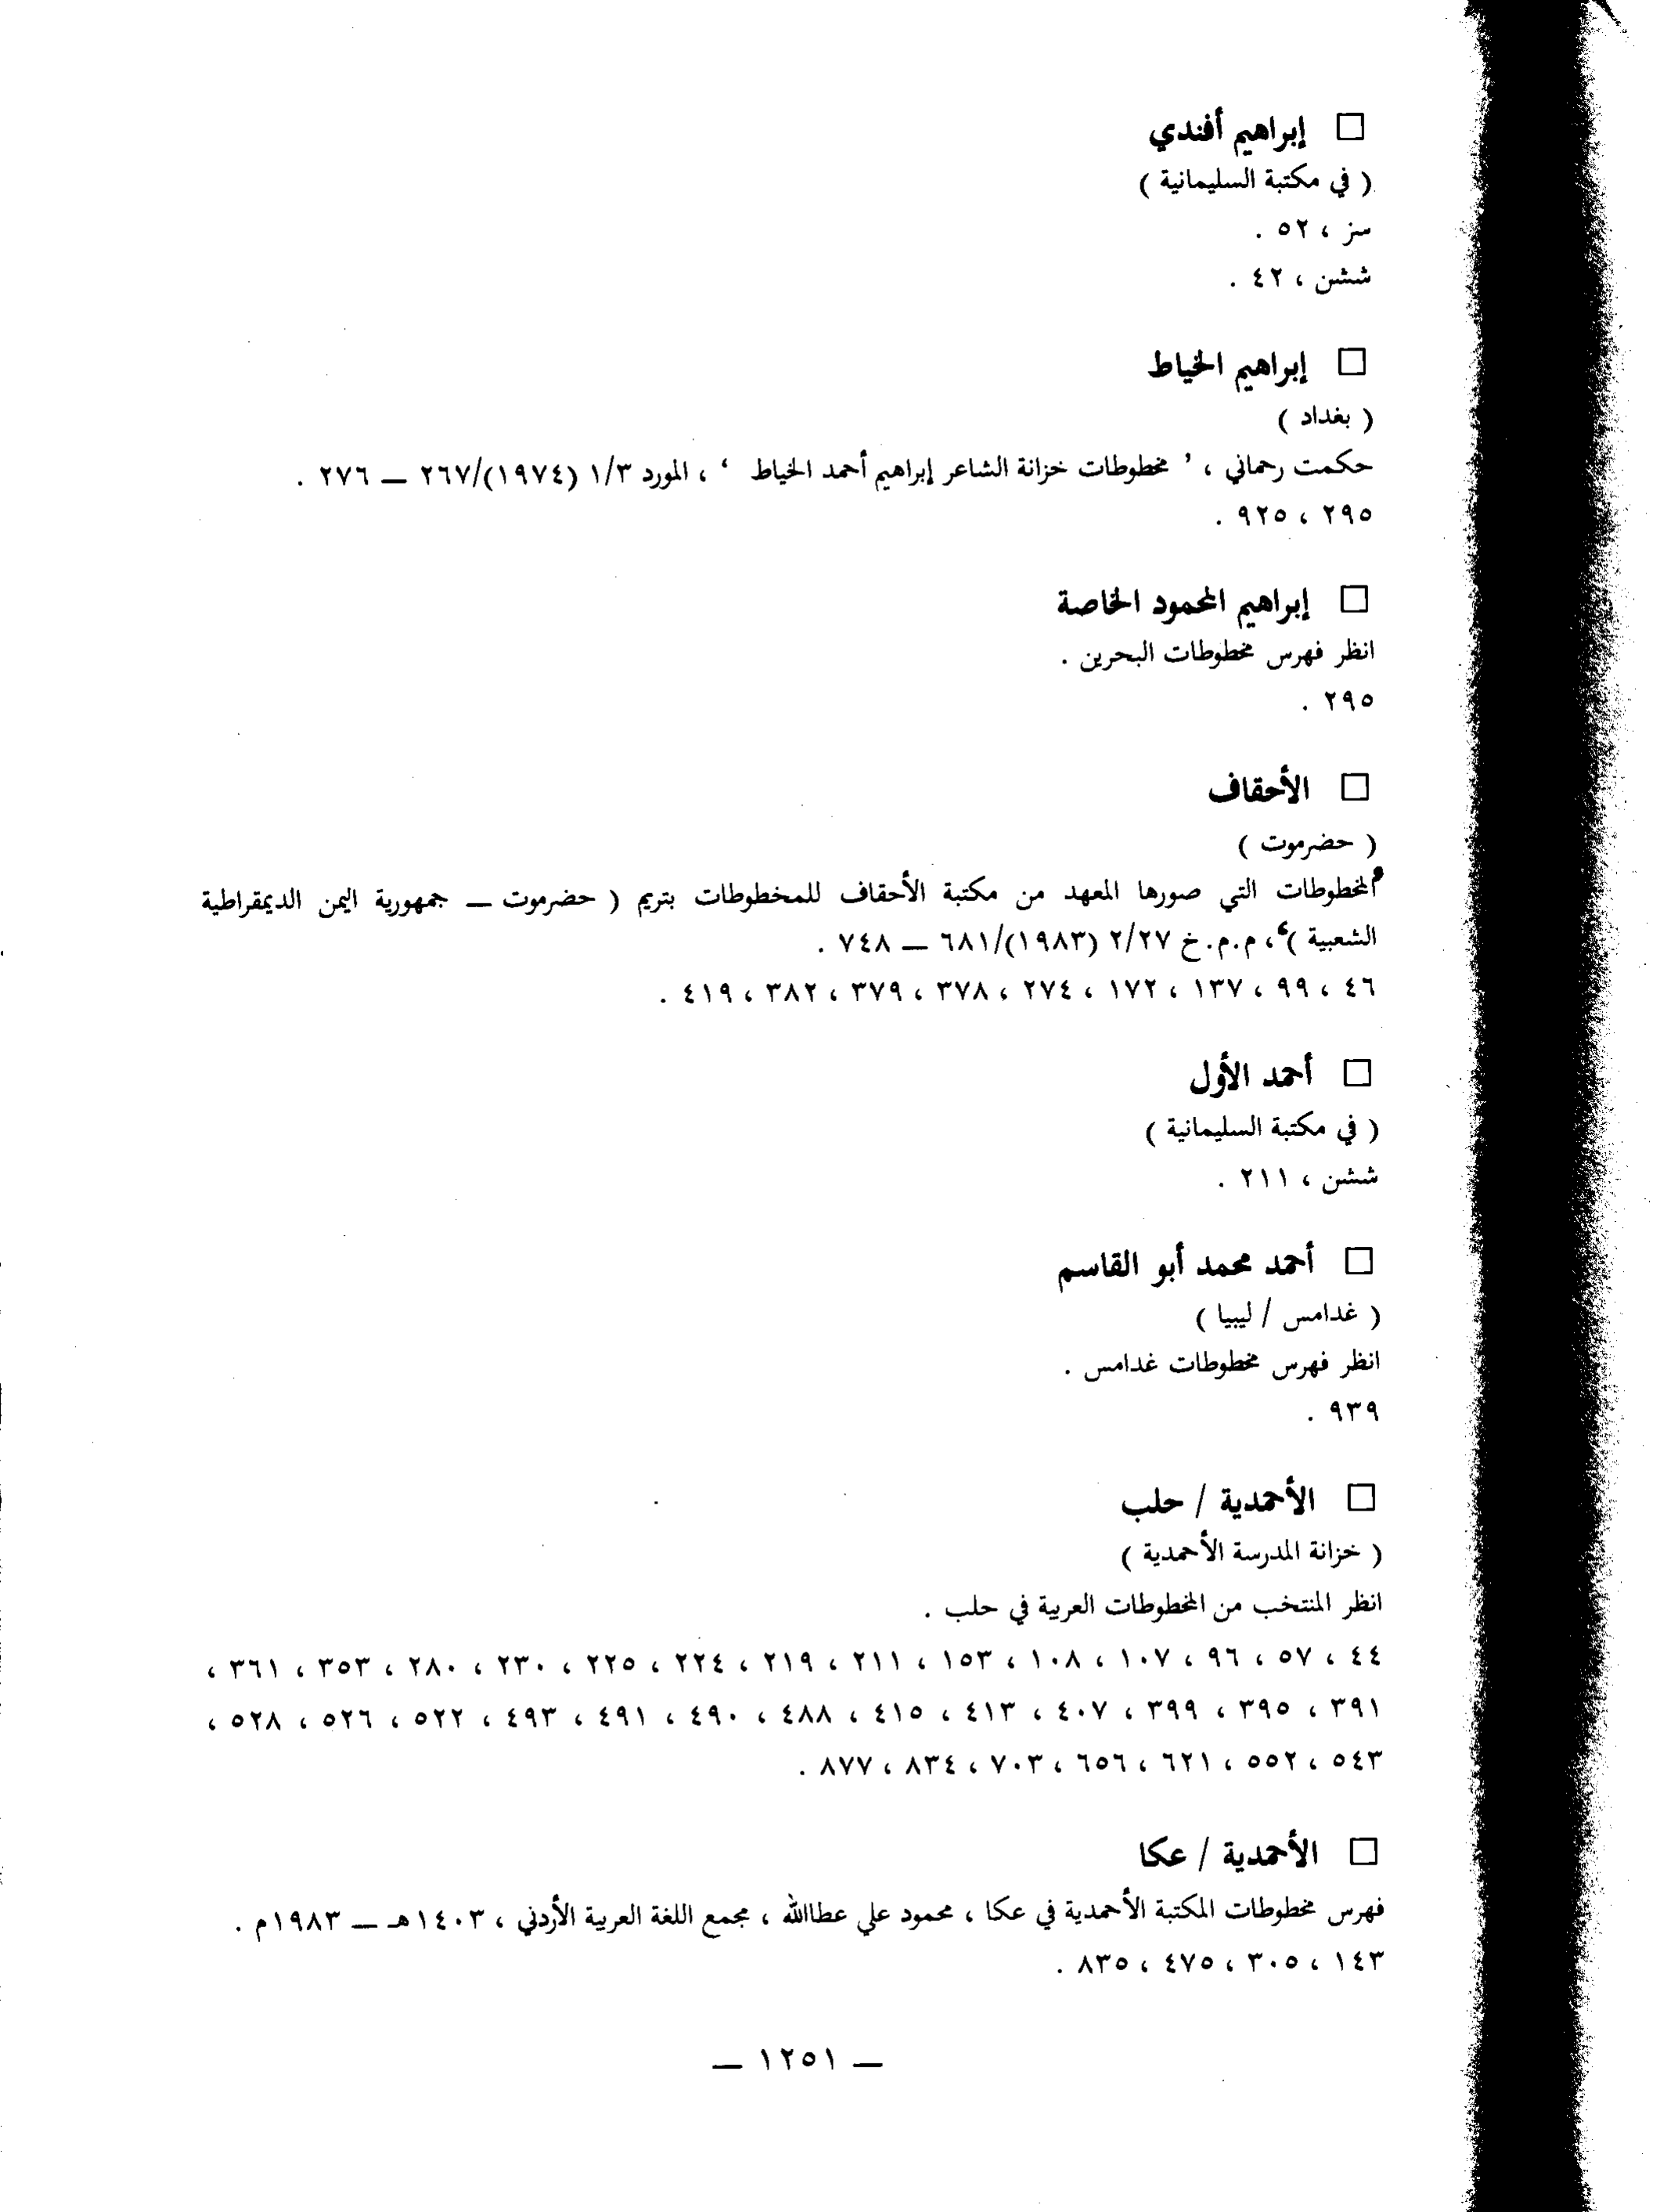 □ إبراهيم أفندي
( في مكتبة السليمانية )
سز ، ٥٢ .
ششن ، ٤٢ .
□ إبراهيم الخياط
( بغداد )
حكمت رحماني ، ’ مخطوطات خزانة الشاعر إبراهيم أحمد الخياط ‘ ، المورد ١/٣ (١٩٧٤)/٢٦٧ — ٢٧٦ .
٢٩٥ ، ٩٢٥ .
□ إبراهيم المحمود الخاصة
انظر فهرس مخطوطات البحرين .
٢٩٥ .
□ الأحقاف
( حضرموت )
’المخطوطات التي صورها المعهد من مكتبة الأحقاف للمخطوطات بتريم ( حضرموت — جمهورية اليمن الديمقراطية
الشعبية )‘، م.م.خ ٢/٢٧ (١٩٨٣)/٦٨١ — ٧٤٨ .
٤٦ ، ٩٩ ، ١٣٧ ، ١٧٢ ، ٢٧٤ ، ٣٧٨ ، ٣٧٩ ، ٣٨٢ ، ٤١٩ .
□ أحمد الأول
( في مكتبة السليمانية )
ششن ، ٢١١ .
□ أحمد محمد أبو القاسم
( غدامس / ليبيا )
انظر فهرس مخطوطات غدامس .
٩٣٩ .
□ الأحمدية / حلب
( خزانة المدرسة الأحمدية )
انظر المنتخب من المخطوطات العربية في حلب .
٤٤ ، ٥٧ ، ٩٦ ، ١٠٧ ، ١٠٨ ، ١٥٣ ، ٢١١ ، ٢١٩ ، ٢٢٤ ، ٢٢٥ ، ٢٣٠ ، ٢٨٠ ، ٣٥٣ ، ٣٦١ ،
٣٩١ ، ٣٩٥ ، ٣٩٩ ، ٤٠٧ ، ٤١٣ ، ٤١٥ ، ٤٨٨ ، ٤٩٠ ، ٤٩١ ، ٤٩٣ ، ٥٢٢ ، ٥٢٦ ، ٥٢٨ ،
٥٤٣ ، ٥٥٢ ، ٦٢١ ، ٦٥٦ ، ٧٠٣ ، ٨٣٤ ، ٨٧٧ .
□ الأحمدية / عكا
فهرس مخطوطات المكتبة الأحمدية في عكا ، محمود علي عطاالله ، مجمع اللغة العربية الأردني ، ١٤٠٣هـ — ١٩٨٣م .
١٤٣ ، ٣٠٥ ، ٤٧٥ ، ٨٣٥ .
— ١٢٥١ —